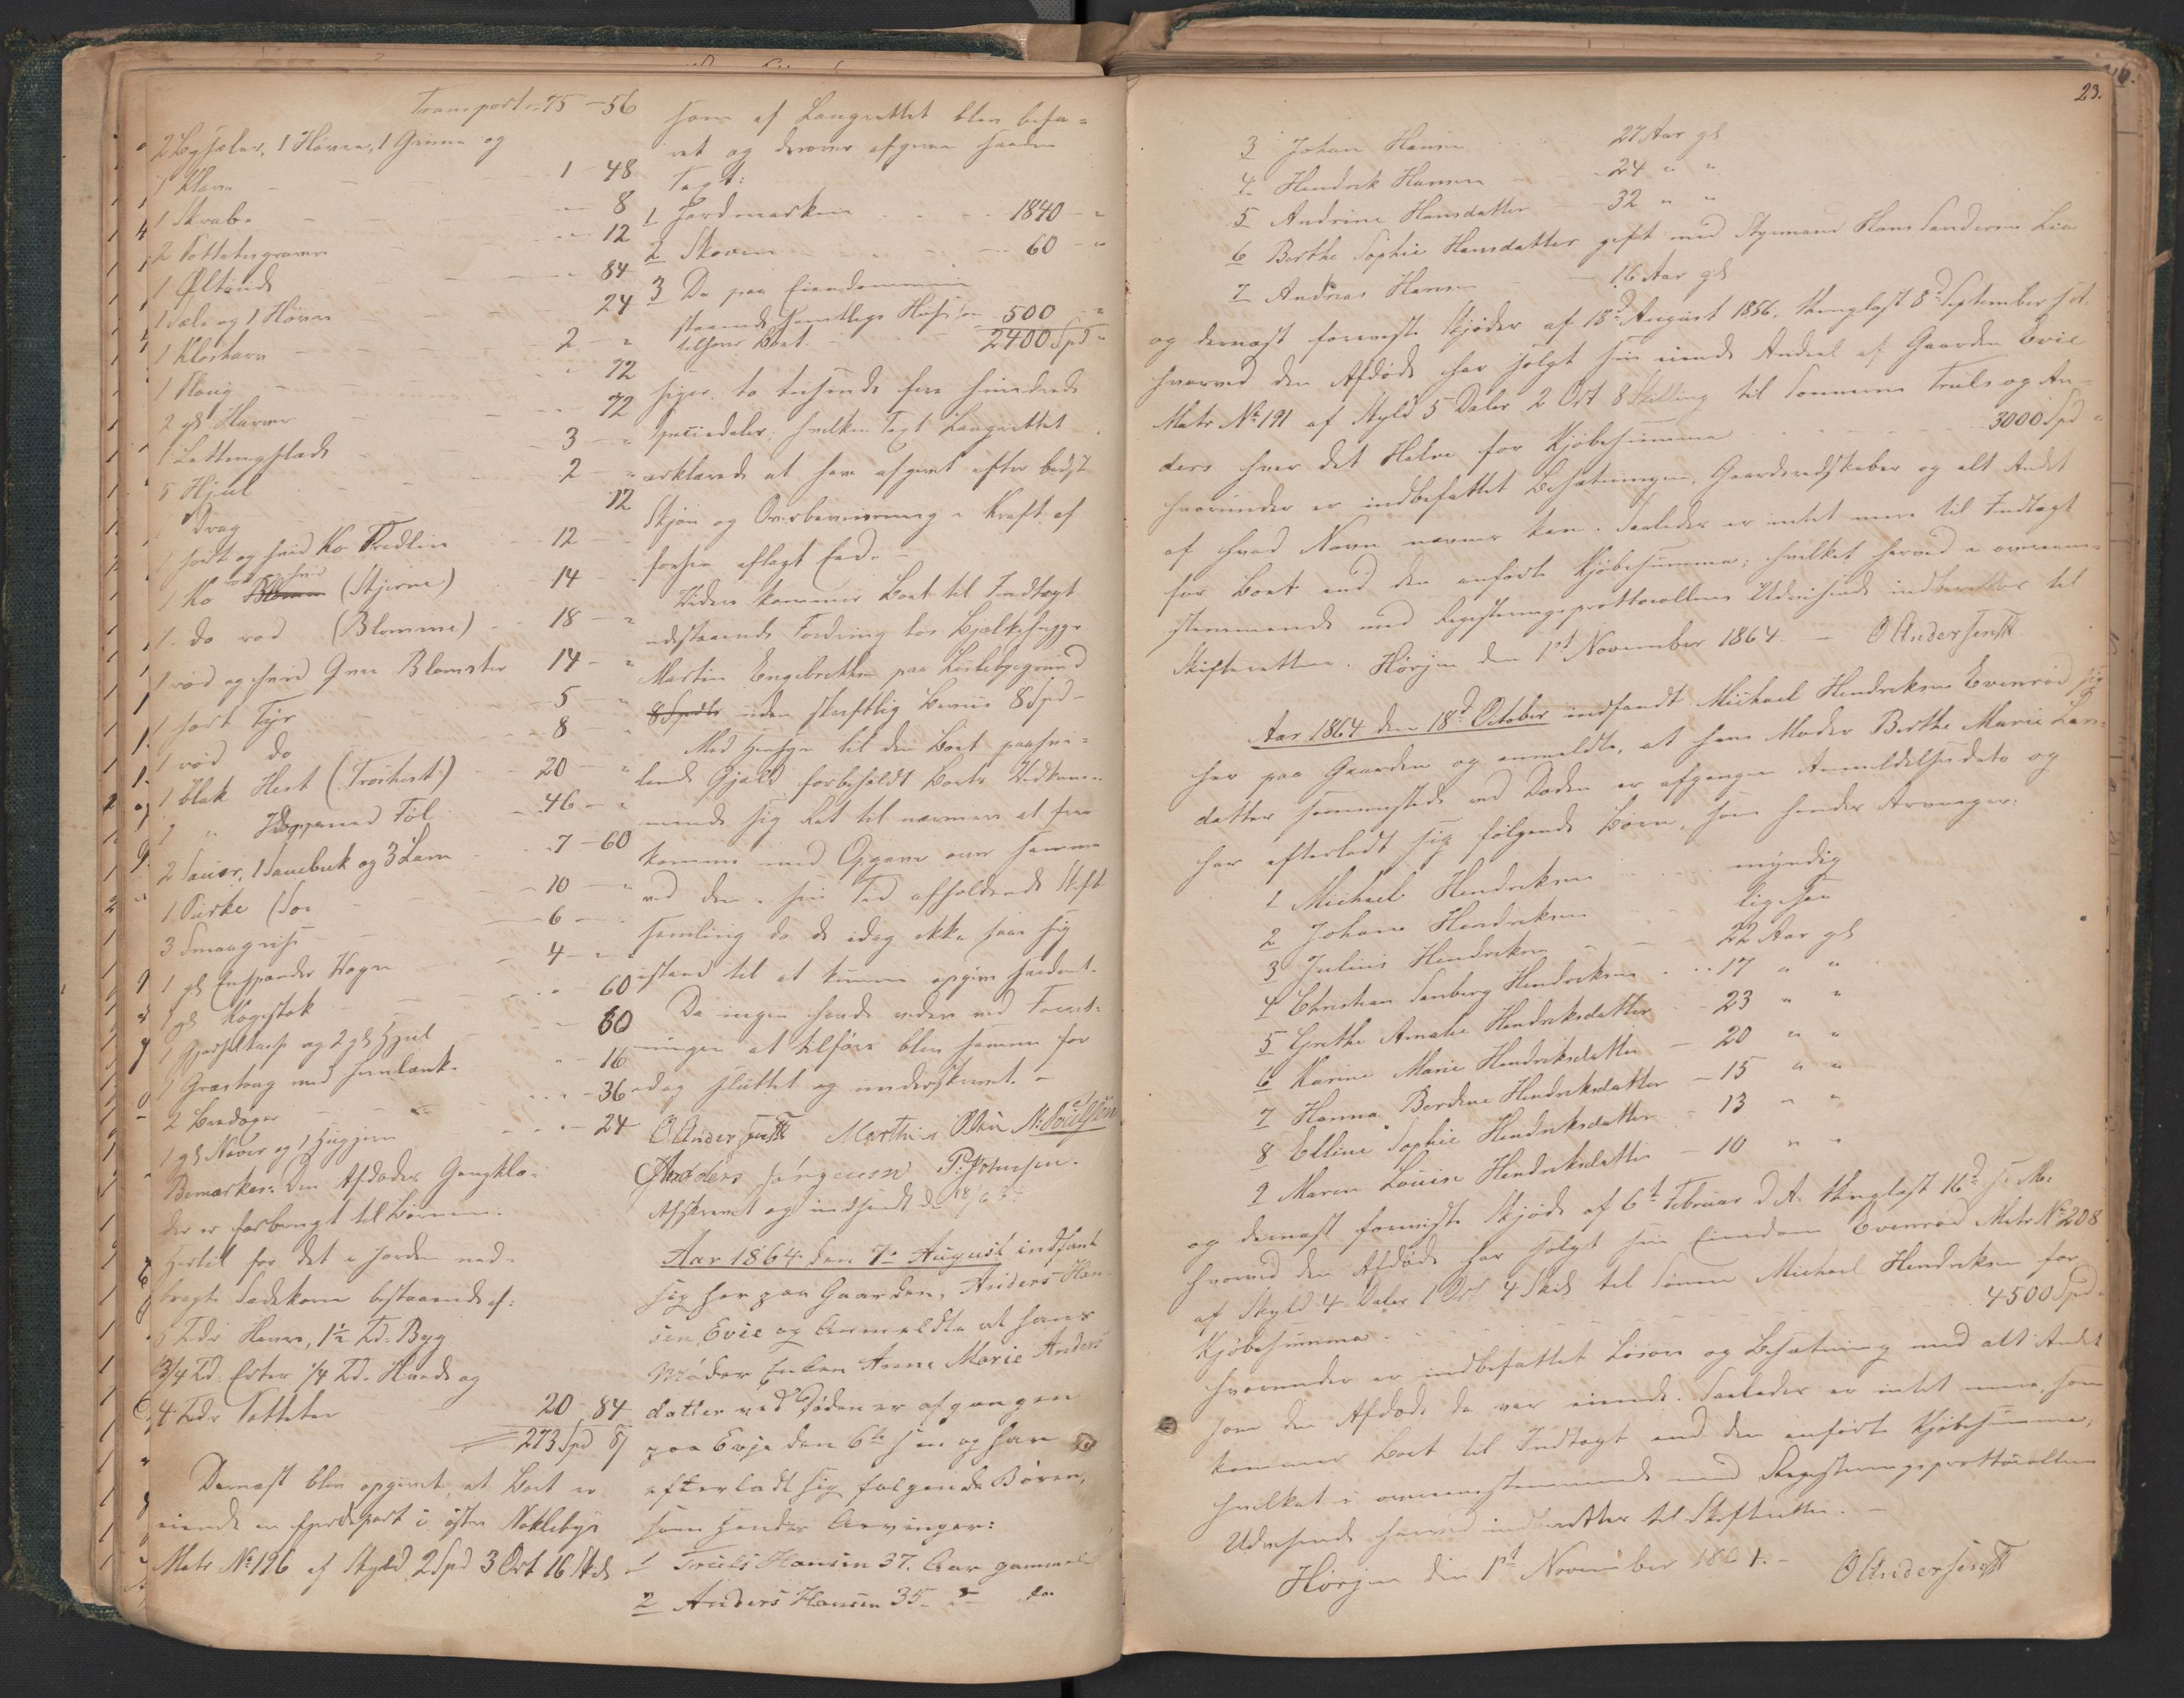 Transport 75 - 56
2 Lysseler, 1 Hövre, 1 Grime og
1 Klave - 1 - 48
1 Skrabe - 8
2 Pottetesgravere - 12
1 Öltönde - 84
1 Sæle og 1 Hövre - 24
1 Klosharv - 2 - "
1 Ploug - 72
2 gl Harver - 72
1 Lettingslæde - 3 - "
5 Hjul - 2 - "
1 Drag 12
1 sort og hvid Ko Fredlin 12 -
1 Ko rød og hvid (Stjerne) 14 -
1 do rød (Blomme) 18 - "
1 rød og hvid Qvie Blomster 14 - "
1 sort Tyr 5 - "
1 rød do 8 -
1 blak Hest (Troihest) 20 - "
1 " Hoppe med Föl 46 - "
2 Sauer, 1 Sauebuk og 3 Lam 7 - 60
1 Purke (So) 10 - "
3 Smaagrise 6 -
1 gl Enspænder Vogn 4 - "
1 gl Kogestok - 60
1 Gjødselkasse og 2 gl Hjul - 60
1 Græstoug med Jernlænk - 16
2 Baadöger - 36
1 gl Naver og 1 Huggjern - 24
Bemærkes: Den Afdødes Gangklæ-
der er forbrugt til Börnene.
Hertil for det i Jorden ned-
bragte Sædekorn bestaaende af:
5 Tdr Havre, 1½ Td. Byg
3/4 Td. Erter 1/4 Td. Hvede og
4 Tdr Potteter 20 - 84
273 Spd 8 s
Dernæst blev opgivet, at Boet er
eiende en Jordepart i östre Neklebye
Matr No 196 af Skyld 2 Spd 3 Ort 16 Sk
som af Laugrettet blev befa-
ret og derover afgiven saadan
Taxt:
1 Jordmarken 1840 - "
2 Skoven 60 - "
3 De paa Eiendommen
staaende samtlige Huse som 500 "
tilhører Boet 2400 Spd "
siger to tusinde fire hundrede
Speciedaler, hvilken Taxt Laugrettet
erklærede at have afgivet efter bedste
Skjøn og Overbeviisning i Kraft af
forhen aflagt Eed. -
Videre kommer Boet til Indtægt
udestaaende Fordring hos Bjælkehugger
Martin Engebrethsen paa Kirkebyegrund
8 Spdlr uden skriftlig Beviis 8 Spd -
Med Hensyn til den Boet paahvi-
lende Gjæld forbeholdt Boets Vedkom-
mende sig Ret til nærmere at frem
komme med Opgave over samme
ved den i sin Tid afholdende Skifte
samling da de idag ikke saae sig
istand til at kunne opgive saadant.
Da ingen havde videre ved Forret-
ningen at tilføre blev samme for
idag sluttet og underskrevet. -
O Andersen Marthin Olsen N: Poulsen
Anders Jörgensen P: Johnsen.
Afskrevet og indsendt d 18/6
Aar 1864 den 7de August indfant
sig her paa Gaarden, Anders Han-
sen Evie og Anmeldte at hans
Moder Enken Anne Marie Anders
datter ved Döden er afgangen
paa Evje den 6te s m og har
efterladt sig følgende Børen,
som Hendes Arvinger:
1 Truls Hansen 37. Aar gammel
2 Anders Hansen 35 " do
23.
3 Johan Hansen 27 Aar gl
4 Hendrik Hansen 24 " "
5 Andrine Hansdatter 32 " "
6 Berthe Sophie Hansdatter gift med Styrmand Hans Sandersen Lea
7 Andreas Hansen 16 Aar gl
og dernæst foreviste Skjøder af 18d August 1856, thinglæst 8d September s. A.
hvorved den Afdøde har solgt sin eiende Andeel af Gaarden Evie
Matr No 191 af Skyld 5 Daler 2 Ort 8 Skilling til Sønnerne Truls og An-
ders hver det Halve for Kjøbesumma 3000 Spd "
hvorunder er indbefattet Besætningen, Gaardsredskaber og alt Andet
af hvad Navn nævnes kan. Saaledes er intet mere til Indtægt
for Boet end den anførte Kjøbesumma; hvilket herved i overeens-
stemmende med Registreringsprottocollens Udvisende indberettes til
Skifteretten. Hörjen den 1st November 1864. - O Andersen
Aar 1864 den 18d October indfandt Michael Hendriksen Evenrød sig
her paa Gaarden og anmeldte, at hans Moder Berthe Marie Lars-
datter sammesteds ved Døden er afgangen Anmeldelsesdato og
har efterladt sig følgende Børn, som hendes Arvinger:
1 Michael Hendriksen myndig
2 Johan Hendriksen ligesaa
3 Julius Hendriksen 22 Aar gl
4 Christian Sanberg Hendriksen 17 " "
5 Grethe Amalie Hendriksdatter 23 " "
6 Karine Marie Hendriksdatter 20 " "
7 Hanna Berdine Hendriksdatter 15 " "
8 Elline Sophie Hendriksdatter 13 " "
9 Maren Louise Hendriksdatter 10 " "
og dernæst foreviste Skjøde af 6t Februar d. A. thinglæst 16d s. M.
hvorved den Afdøde har solgt sin Eiendom Evenrød Matr No 208
af Skyld 4 Daler 1 Ort 4 Skil til Sønnen Michael Hendriksen for
Kjøbesumma 4500 Spd "
hvorunder er indbefattet Løsøre og Besætning med alt Andet
som den Afdøde da var eiende. Saaledes er intet mere, som
kommer Boet til Indtægt end den anførte Kjøbesumma,
hvilket i overeensstemmende med Registreringsprottocollens
Udvisende herved indberettes til Skifteretten. -
Hörjen den 1st November 1864. - O Andersen